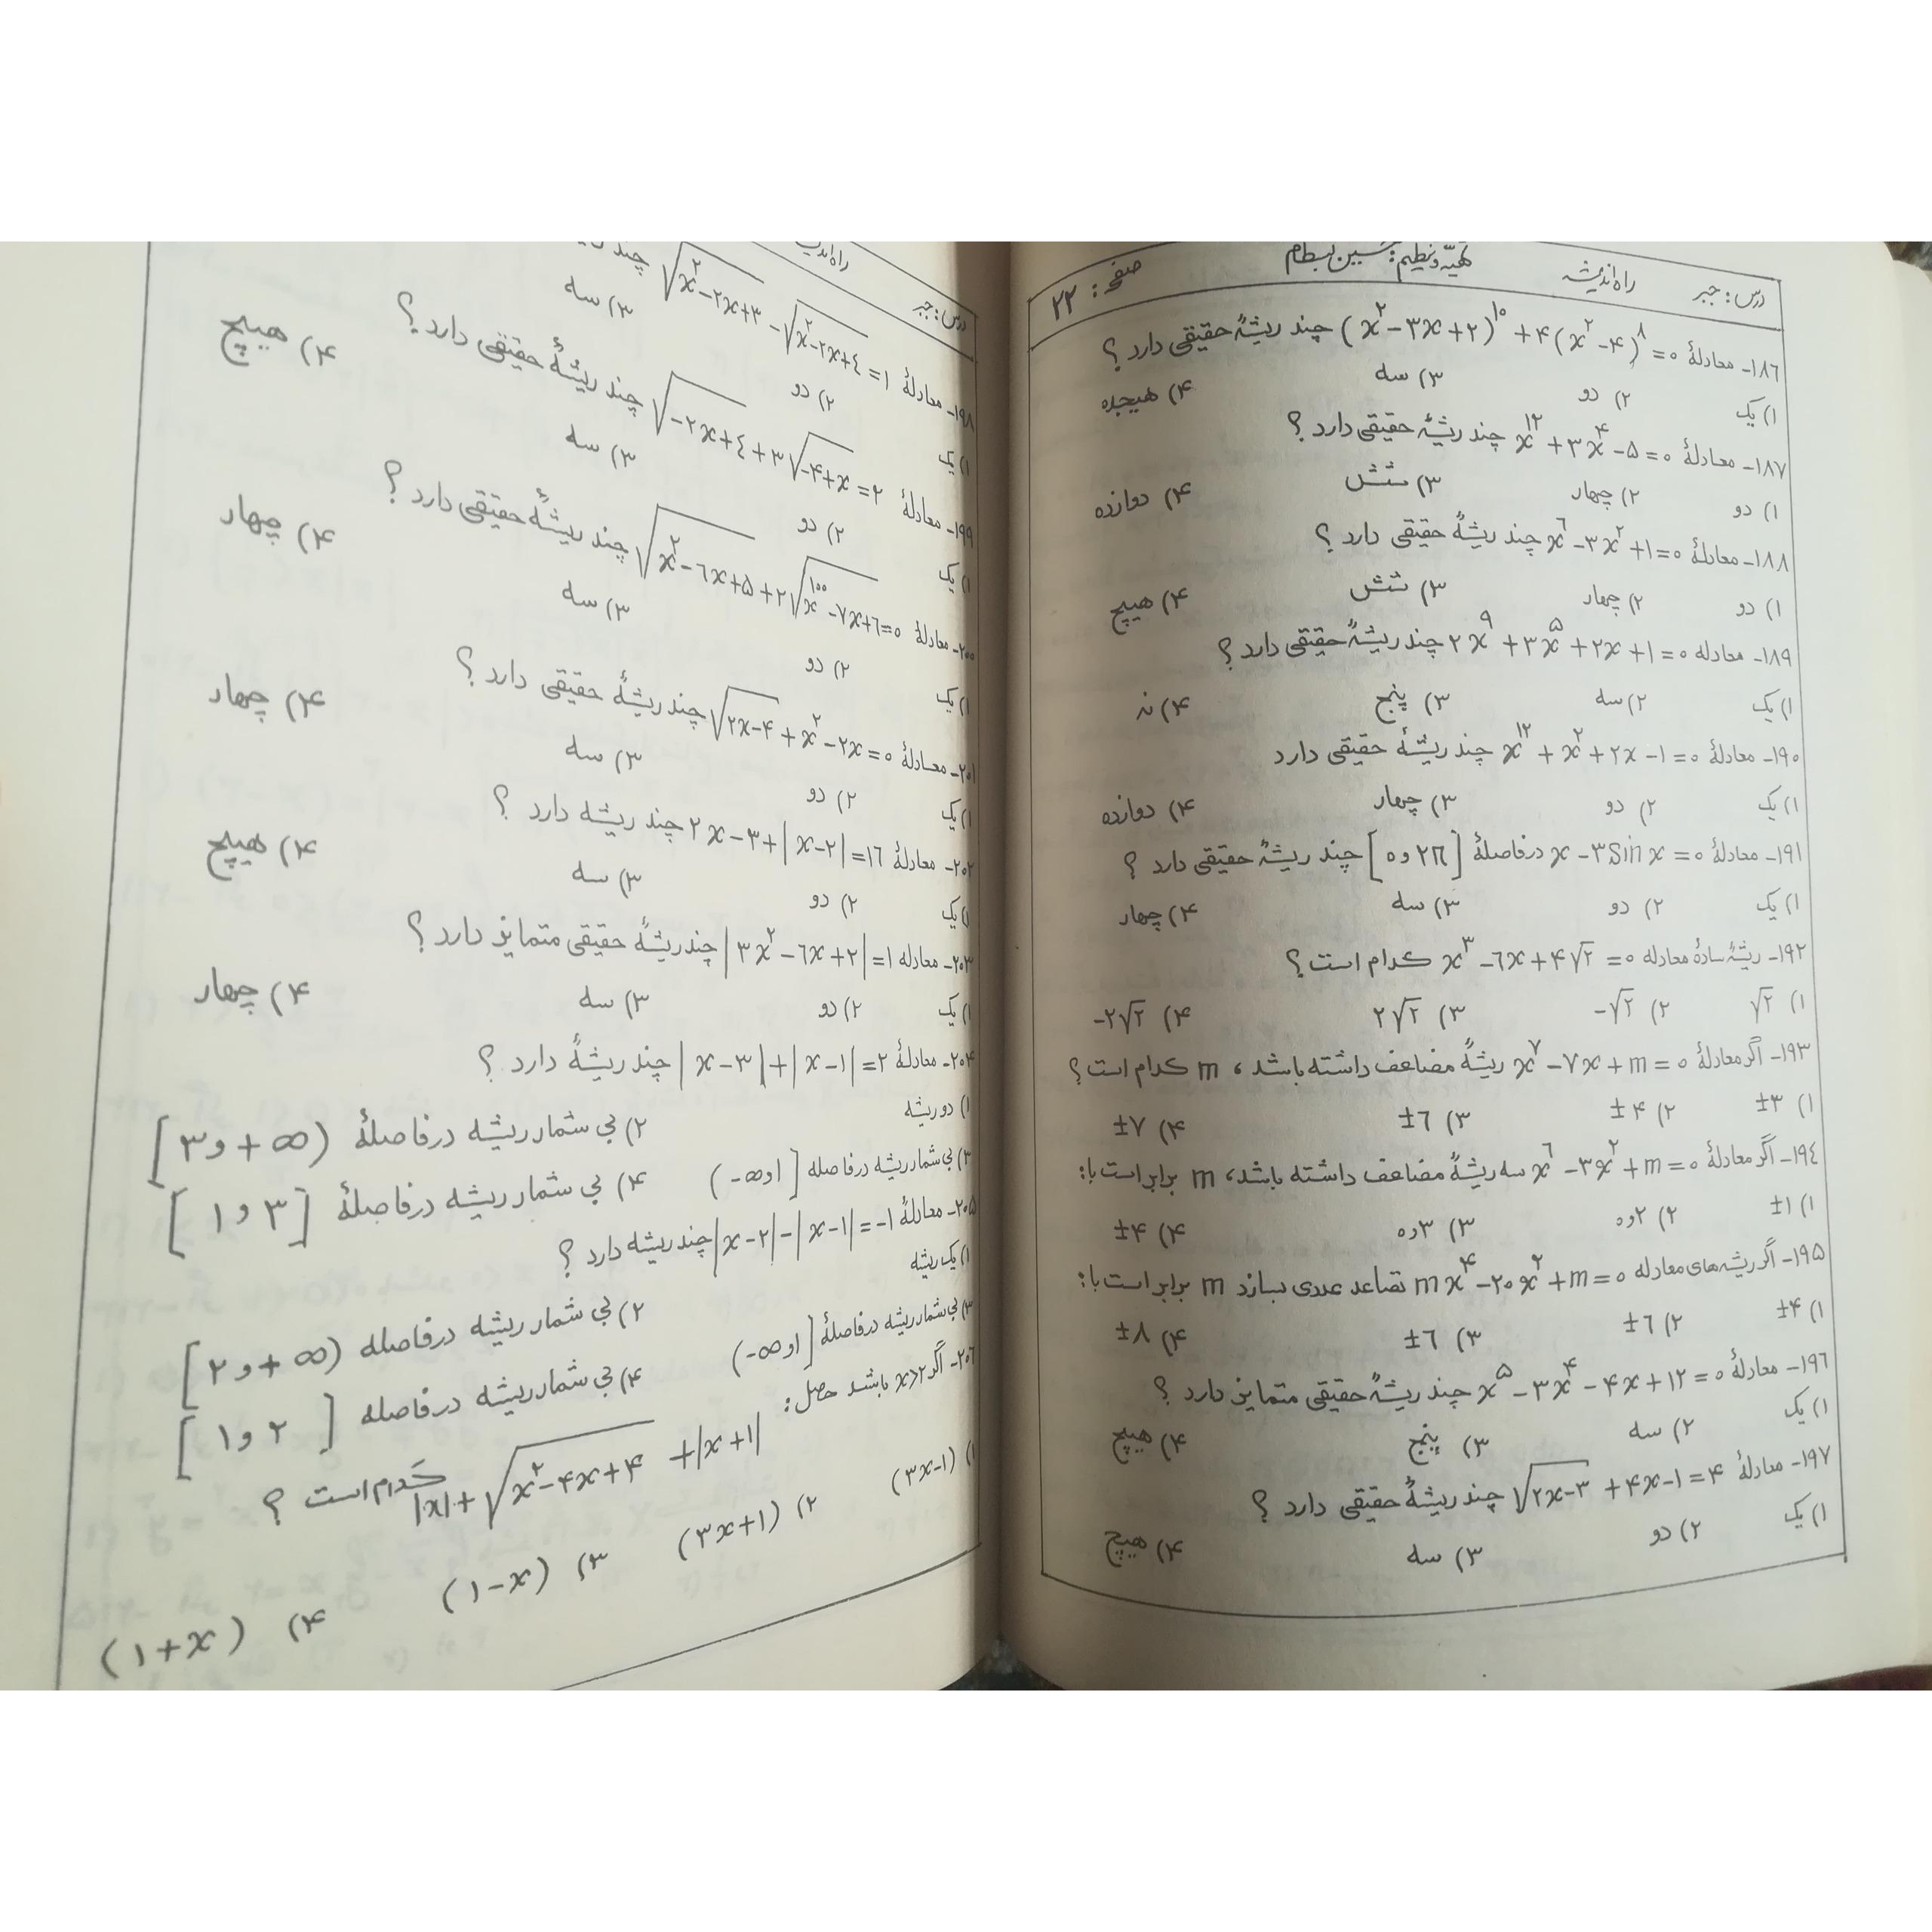 درس: جبر راه اندیشه تهیه و تنظیم: حسین بسطام صفحه: ۲۲
۱۸۶- معادلهٔ (x²-۳x+۲)¹⁰+۴(x²-۴)⁸=۰ چند ریشهٔ حقیقی دارد ؟
۱) یک ۲) دو ۳) سه ۴) هیجده
۱۸۷- معادلهٔ x¹²+۳x⁴-۵=۰ چند ریشهٔ حقیقی دارد ؟
۱) دو ۲) چهار ۳) شش ۴) دوازده
۱۸۸- معادلهٔ x⁶-۳x²+۱=۰ چند ریشهٔ حقیقی دارد ؟
۱) دو ۲) چهار ۳) شش ۴) هیچ
۱۸۹- معادله ۲x⁹+۳x⁵+۲x+۱=۰ چند ریشهٔ حقیقی دارد ؟
۱) یک ۲) سه ۳) پنج ۴) نه
۱۹۰- معادلهٔ x¹²+x²+۲x-۱=۰ چند ریشهٔ حقیقی دارد
۱) یک ۲) دو ۳) چهار ۴) دوازده
۱۹۱- معادلهٔ x-۳Sin x=۰ در فاصلهٔ [۰ و ۲π] چند ریشهٔ حقیقی دارد ؟
۱) یک ۲) دو ۳) سه ۴) چهار
۱۹۲- ریشهٔ سادهٔ معادله x³-۶x+۴√۲=۰ کدام است ؟
۱) √۲ ۲) -√۲ ۳) ۲√۲ ۴) -۲√۲
۱۹۳- اگر معادلهٔ x⁷-۷x+m=۰ ریشهٔ مضاعف داشته باشد، m کدام است ؟
۱) ±۳ ۲) ±۴ ۳) ±۶ ۴) ±۷
۱۹۴- اگر معادلهٔ x⁶-۳x²+m=۰ سه ریشهٔ مضاعف داشته باشد، m برابر است با:
۱) ±۱ ۲) ۲و۰ ۳) ۳و۰ ۴) ±۴
۱۹۵- اگر ریشه های معادله mx⁴-۲۰x²+m=۰ تصاعد عددی بسازد m برابر است با:
۱) ±۴ ۲) ±۶ ۳) ±۶ ۴) ±۸
۱۹۶- معادلهٔ x⁵-۳x⁴-۴x+۱۲=۰ چند ریشهٔ حقیقی متمایز دارد ؟
۱) یک ۲) سه ۳) پنج ۴) هیچ
۱۹۷- معادلهٔ √(۲x-۳)+۴x-۱=۴ چند ریشهٔ حقیقی دارد ؟
۱) یک ۲) دو ۳) سه ۴) هیچ
درس: جبر
۱۹۸- معادلهٔ √(x²-۲x+۳)-√(x²-۲x+۴)=۱ چند
۱) یک ۲) دو ۳) سه ۴) هیچ
۱۹۹- معادلهٔ √(-۲x+۴)+۳√(-۴+x)=۲ چند ریشهٔ حقیقی دارد ؟
۱) یک ۲) دو ۳) سه ۴) چهار
۲۰۰- معادلهٔ √(x²-۶x+۵)+۲√(x¹⁰⁰-۷x+۶)=۰ چند ریشهٔ حقیقی دارد ؟
۱) یک ۲) دو ۳) سه ۴) چهار
۲۰۱- معادلهٔ √(۲x-۴)+x²-۲x=۰ چند ریشهٔ حقیقی دارد ؟
۱) یک ۲) دو ۳) سه ۴) هیچ
۲۰۲- معادلهٔ ۲x-۳+|x-۲|=۱۶ چند ریشه دارد ؟
۱) یک ۲) دو ۳) سه ۴) چهار
۲۰۳- معادله |۳x²-۶x+۲|=۱ چند ریشهٔ حقیقی متمایز دارد ؟
۱) یک ۲) دو ۳) سه
۲۰۴- معادلهٔ |x-۳|+|x-۱|=۲ چند ریشهٔ دارد ؟
۱) دو ریشه ۲) بی شمار ریشه در فاصلهٔ [۳ و +∞)
۳) بی شمار ریشه در فاصله (-∞ و ۱] ۴) بی شمار ریشه در فاصلهٔ [۱ و ۳]
۲۰۵- معادلهٔ |x-۲|-|x-۱|=-۱ چند ریشه دارد ؟
۱) یک ریشه ۲) بی شمار ریشه در فاصله [۲ و +∞)
۳) بی شمار ریشه در فاصلهٔ (-∞ و ۱] ۴) بی شمار ریشه در فاصله [۱ و ۲]
۲۰۶- اگر x>۲ باشد حاصل: |x|+√(x²-۴x+۴)+|x+۱| کدام است ؟
۱) (۳x-۱) ۲) (۳x+۱) ۳) (۱-x) ۴) (۱+x)